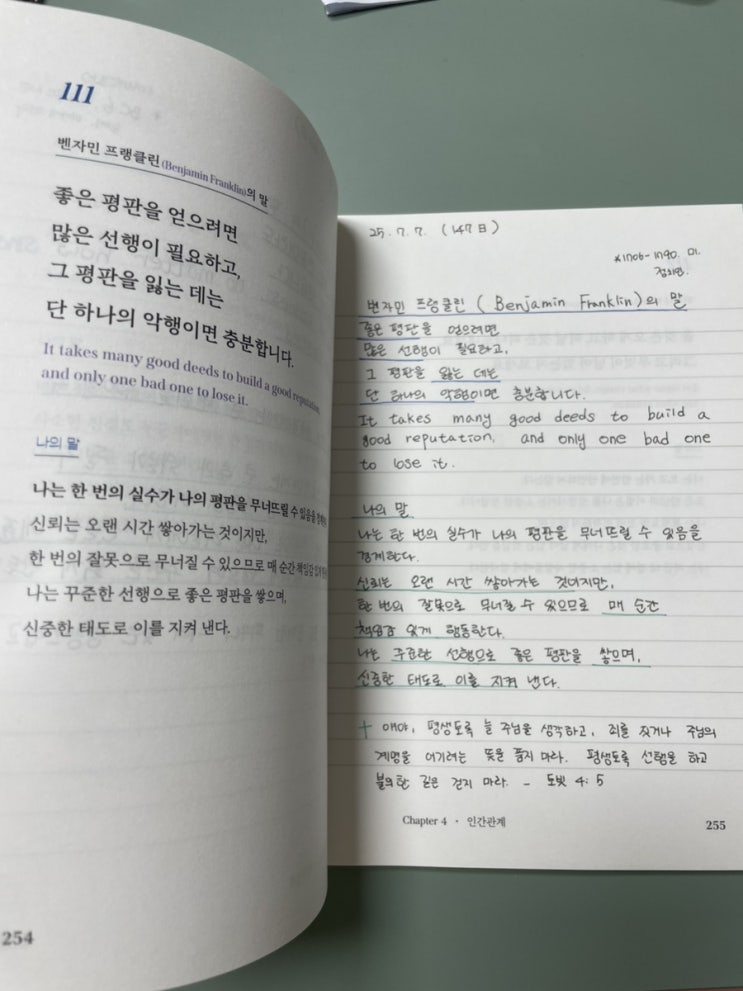 111
벤자민 프랭클린(Benjamin Franklin)의 말
좋은 평판을 얻으려면
많은 선행이 필요하고,
그 평판을 잃는 데는
단 하나의 악행이면 충분합니다.
It takes many good deeds to build a good reputation,
and only one bad one to lose it.
나의 말
나는 한 번의 실수가 나의 평판을 무너뜨릴 수 있음을
신뢰는 오랜 시간 쌓아가는 것이지만,
한 번의 잘못으로 무너질 수 있으므로 매 순간 책임감 있게
나는 꾸준한 선행으로 좋은 평판을 쌓으며,
신중한 태도로 이를 지켜 낸다.
254
25. 7. 7. (147日)
*1706-1790. 미.
정치인.
벤자민 프랭클린 (Benjamin Franklin)의 말
좋은 평판을 얻으려면
많은 선행이 필요하고,
그 평판을 잃는 데는
단 하나의 악행이면 충분합니다.
It takes many good deeds to build a
good reputation, and only one bad one
to lose it.
나의 말
나는 한 번의 실수가 나의 평판을 무너뜨릴 수 있음을
경계한다.
신뢰는 오랜 시간 쌓아가는 것이지만,
한 번의 잘못으로 무너질 수 있으므로 매 순간
책임감 있게 행동한다.
나는 꾸준한 선행으로 좋은 평판을 쌓으며,
신중한 태도로 이를 지켜 낸다.
† 얘야, 평생토록 늘 주님을 생각하고, 죄를 짓거나 주님의
계명을 어기려는 뜻을 품지 마라. 평생토록 선행을 하고
불의한 길은 걷지 마라. - 토빗 4:5
Chapter 4 · 인간관계
255